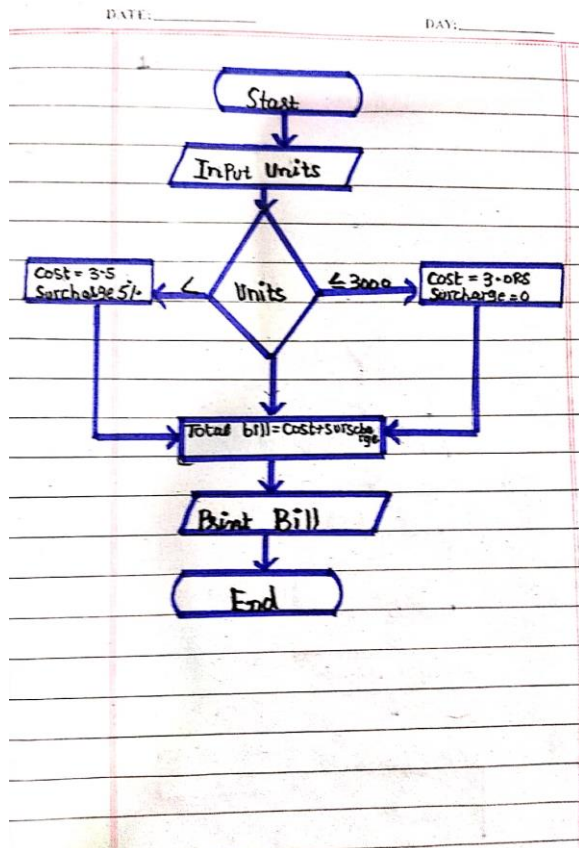 DATE:
DAY:
1
Start
InPut Units
Units
<
≤3000
Cost = 3.5
Surcharge 5%
Cost = 3.0RS
Surcharge = 0
Total bill = Cost + surscha
rge
Print Bill
End